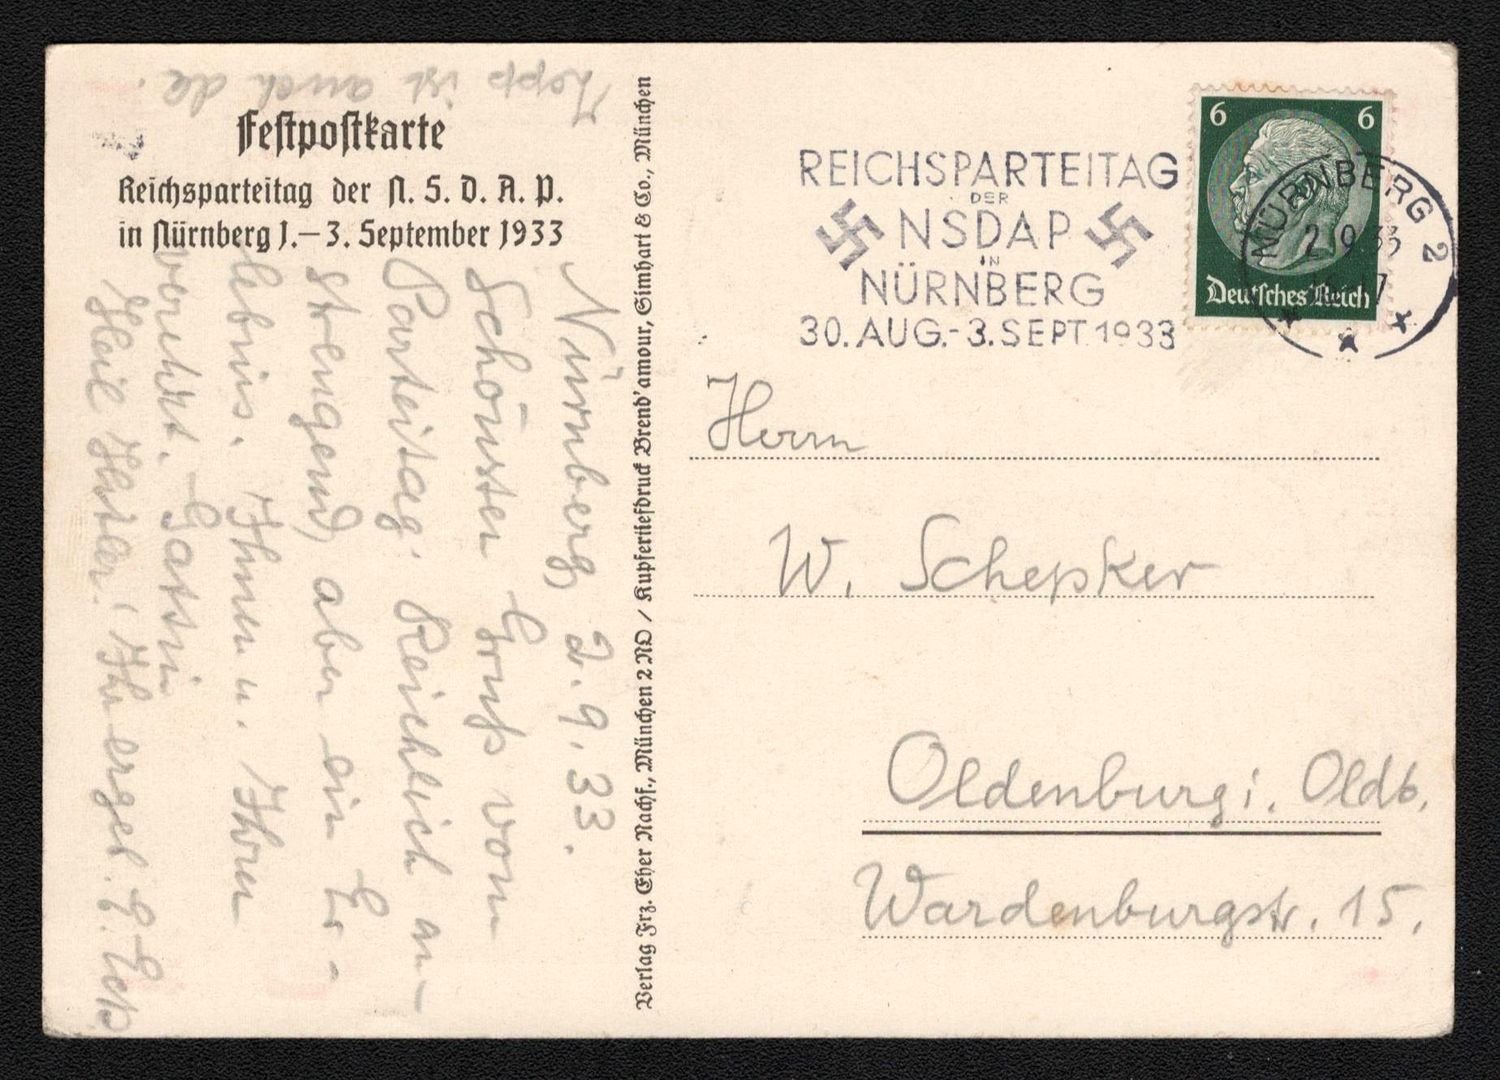 Festpostkarte
Reichsparteitag der N. S. D. A. P.
in Nürnberg 1.–3. September 1933
Nürnberg, 2. 9. 33.
Schönsten Gruß vom
Parteitag. Reichlich an-
strengend, aber ein Er-
lebnis. Ihnen u. Ihrer
verehrt. Gattin
Heil Hitler! Ihr ergeb.
Zopp ist auch da.
Verlag Frz. Eher Nachf., München 2 NO / Kupfertiefdruck Brend'amour, Simhart & Co., München
REICHSPARTEITAG
DER
NSDAP
IN
NÜRNBERG
30. AUG.-3. SEPT. 1933
6 6
Deutsches Reich
NÜRNBERG 2
2.9.33
Herrn
W. Schepker
Oldenburg i. Oldb.
Wardenburgstr. 15.